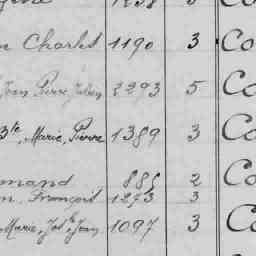 Charles 1190 3 Co
Jean Pierre Julien 2293 5 Co
Bte, Marie, Pierre 1389 3 Co
mand 885 2 Co
n, François 1273 3
Marie, Jos. Jean 1097 3 Co